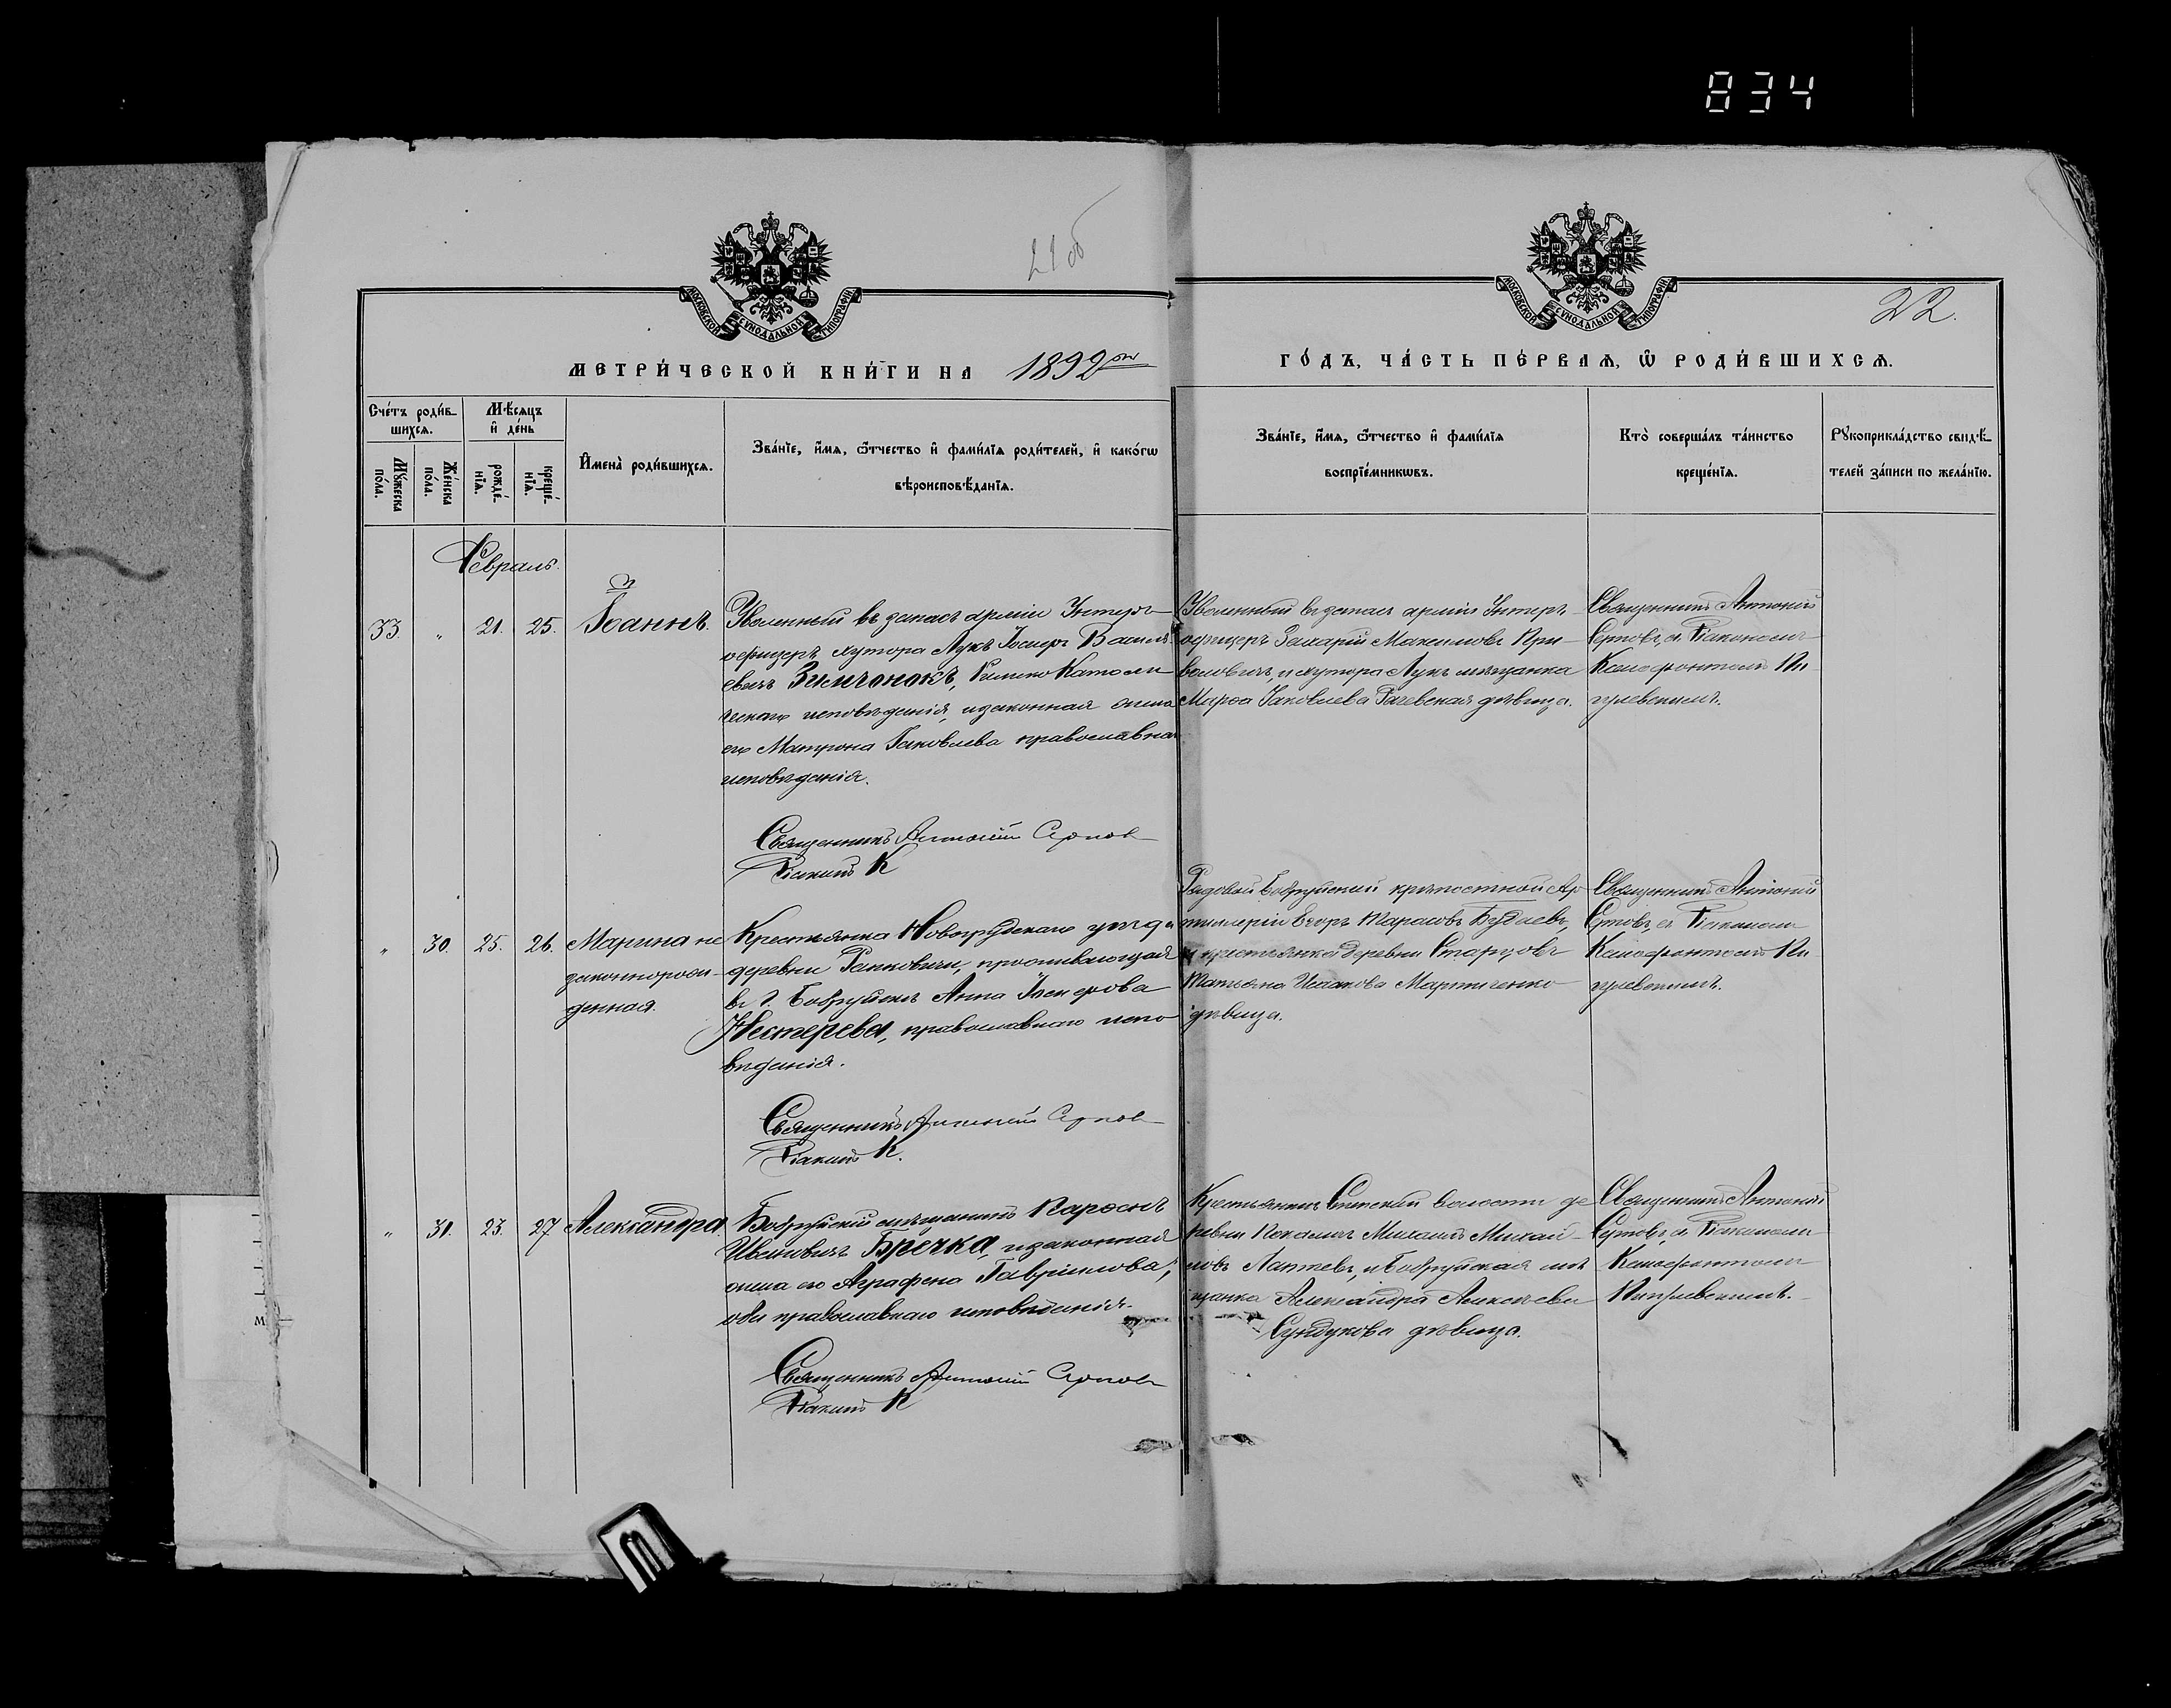 834
21 об
22.
МОСКОВСКОЙ СѴНОДАЛЬНОЙ ТИПОГРАФІИ
МОСКОВСКОЙ СѴНОДАЛЬНОЙ ТИПОГРАФІИ
МЕТРИ́ЧЕСКОЙ КНИ́ГИ НА 1892 ой
ГО́ДЪ, ЧА́СТЬ ПЕ́РВАѦ, Ѽ РОДИ́ВШИХСѦ.
Сче́тъ роди́в-
шихсѧ.
Мꙋ́жеска по́ла.
Же́нска по́ла.
Мѣ́сѧцъ
и҆ де́нь
рожде́-
нїѧ.
креще́-
нїѧ.
И҆мена̀ роди́вшихсѧ.
Зва́нїе, и҆́мѧ, ѻ҆́тчество и҆ фами́лїѧ роди́телей, и҆ како́гѡ
вѣроисповѣ́данїѧ.
Зва́нїе, и҆́мѧ, ѻ҆́тчество и҆ фами́лїѧ
воспрїе́мникѡвъ.
Кто̀ соверша́лъ та́инство
креще́нїѧ.
Рꙋкоприкла́дство свидѣ́-
телей за́писи по жела́нїю.
Февраль.
33. " 21. 25. Іоаннъ.
Уволенный въ запасъ арміи Унтеръ-
офицеръ хутора Лукъ Іосифъ Василь-
евичъ Зимчонокъ, Римско Католи
ческаго исповѣданія, и законная жена
его Матрона Іаковлева православнаго
исповѣданія.
Священникъ Антоній Серпов
Діаконъ К
Уволенный въ запасъ арміи Унтеръ-
офицеръ Захарій Максимовъ При-
воловичъ, и хутора Лукъ мѣщанка
Марѳа Іаковлева дѣвица.
Священникъ Антоній
Серповъ, съ Діакономъ
Ксенофонтомъ Пи-
гулевскимъ.
" 30. 25. 26. Марина не
законнорож-
денная.
Крестьянка Новогрудскаго уѣзда
деревни проживающая
въ г. Бобруйскѣ Анна Іосифова
Нестерева, православнаго испо
вѣданія.
Священникъ Антоній Серпов
Діаконъ К.
Рядовой Бобруйской крѣпостной Ар
тиллеріи Егоръ Тарасовъ
и крестьянка деревни Старцовъ
Татьяна Исаакова Мартиченко
дѣвица.
Священникъ Антоній
Серповъ, съ Діакономъ
Ксенофонтомъ Пи-
гулевскимъ.
" 31. 23. 27 Александра.
Бобруйскій мѣщанинъ Карпъ
Ивановичъ Бречка, и законная
жена его Аграфена Гавріилова,
оба православнаго исповѣданія.
Священникъ Антоній Серпов
Діаконъ К
Крестьянинъ волости де
ревни Михаилъ Михаи-
ловъ Лаптевъ, и Бобруйская мѣ
щанка Александра Алексѣева
Сундукова дѣвица.
Священникъ Антоній
Серповъ, съ Діакономъ
Ксенофонтомъ
Пигулевскимъ.